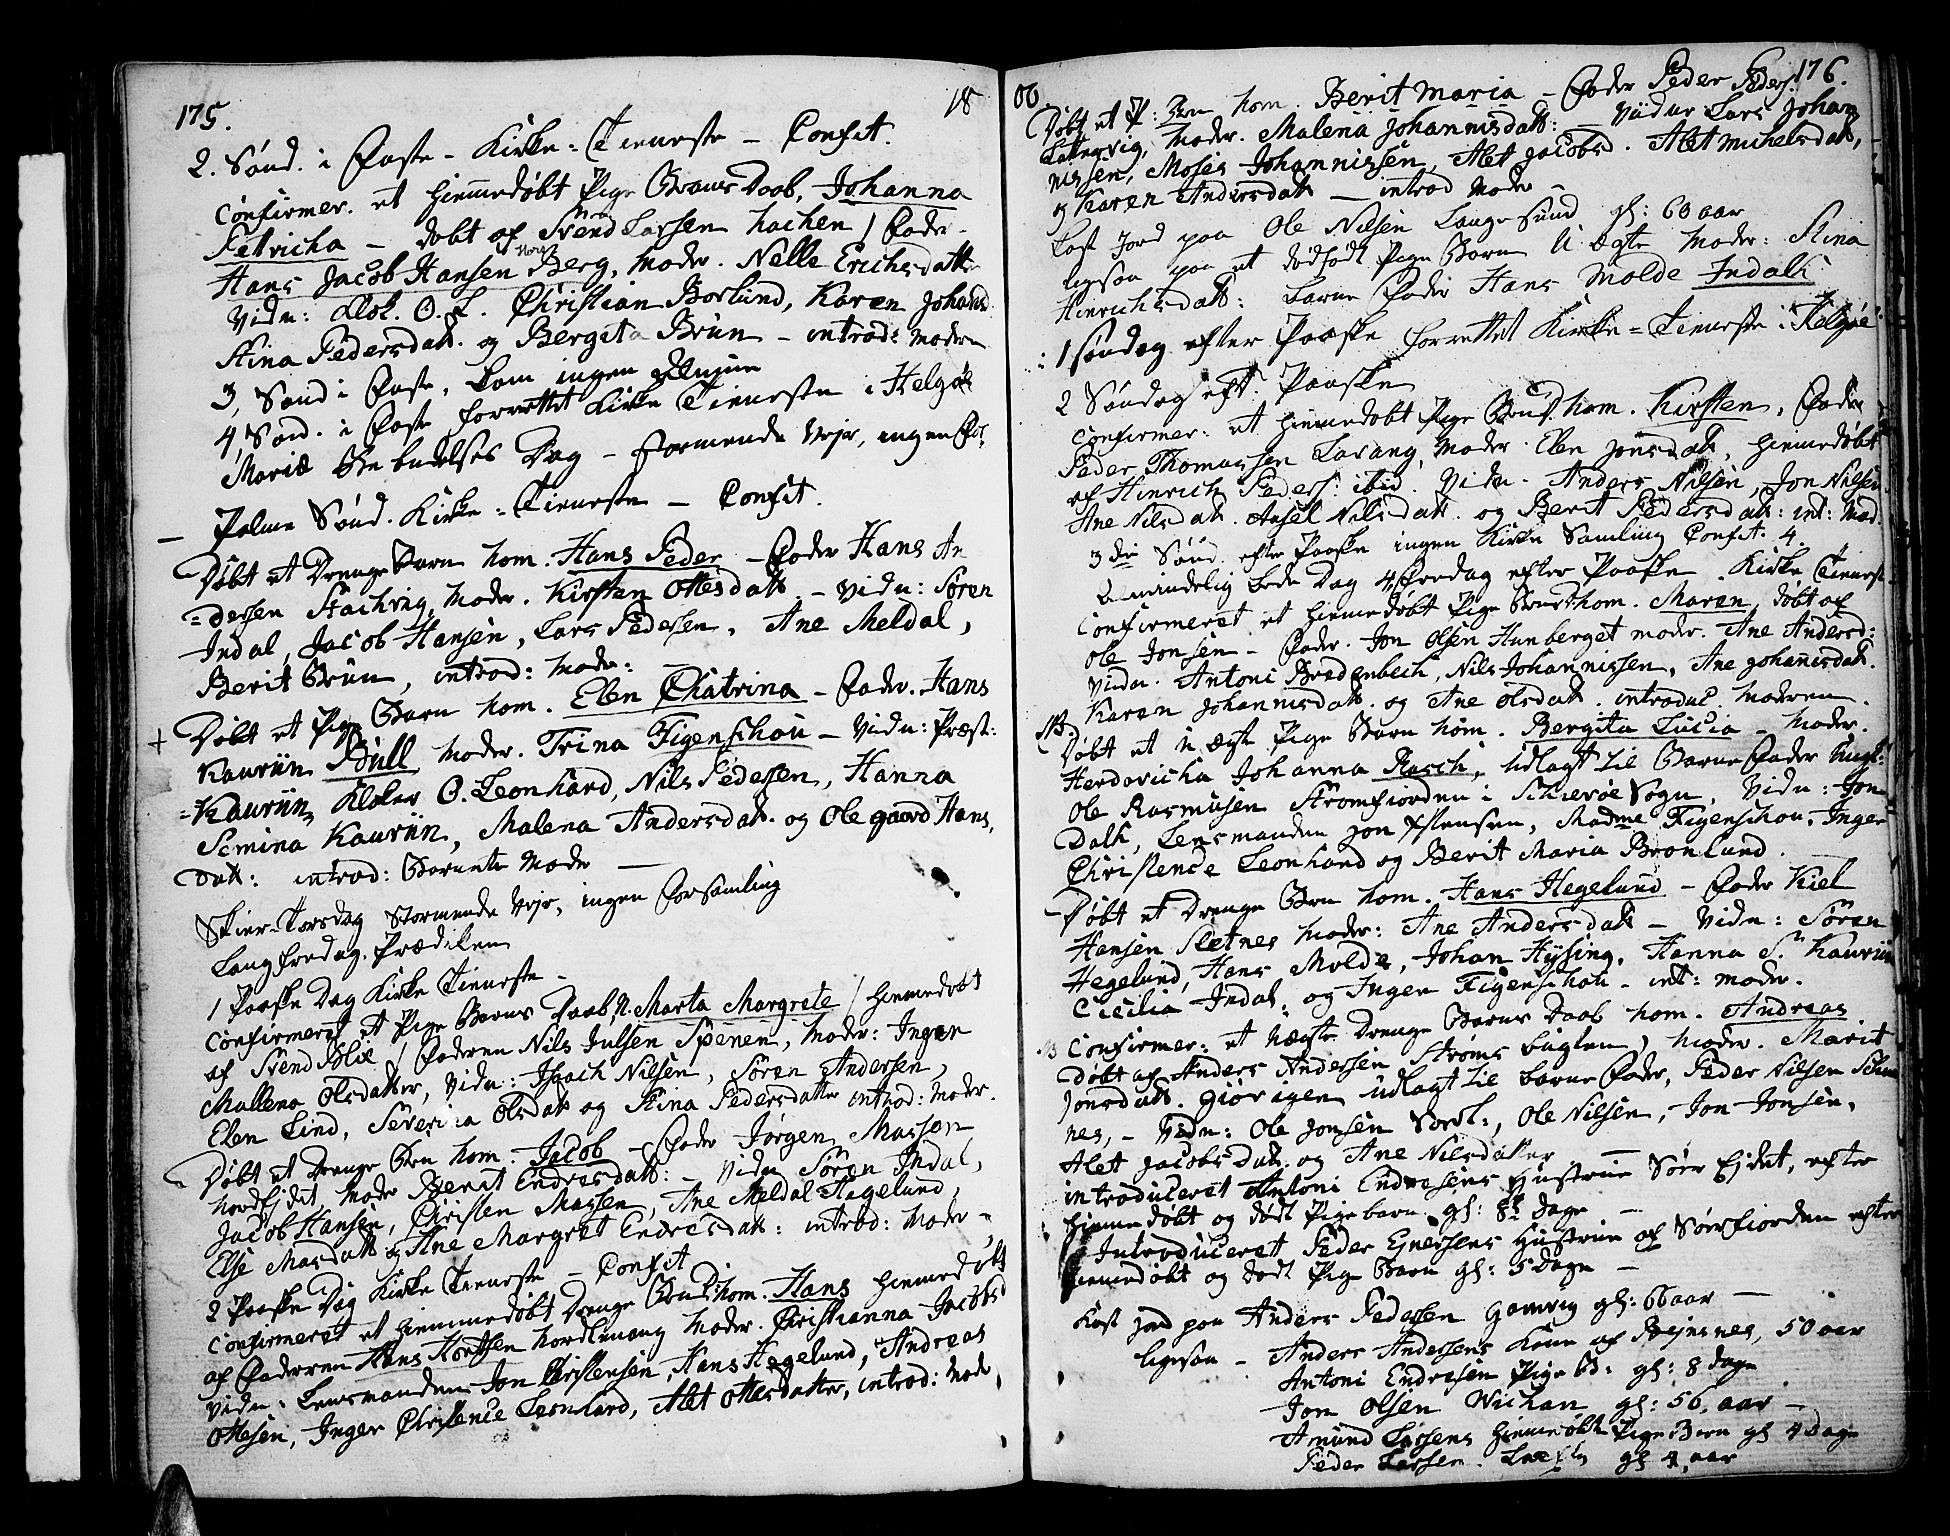 175.
18
2. Sønd. i Faste - Kirke-Tieneste - Confit.
Confirmer. et hiemmedøbt Pige Barns Daab, Johanna
Petricha - døbt af Svend Larssen Kachen / Fader
Hans Jacob Hansen Berg, Moder. Nelle Erichsdatter
Vidn: Klok. O. L. Christian Borlund, Karen Johans
Stina Pedersdatt. og Bergeta Brun - introd: Moder
3, Sønd i Faste, kom ingen
4 Sønd. i Faste forrettet Kirke Tieneste i Helgøe
Mariæ Bebudelses Dag - stormende Vejr, ingen For
Palme Sønd. Kirke-Tieneste - Confit.
Døbt et Drenge Barn hom. Hans Peder - Fader Hans An
=dersen Stachvig, Moder. Kirsten Ottesdatt - Vidn: Søren
Indal, Jacob Hansen, Lars Pedersen, Ane Meldal,
Berit Brun, introd: Moder:
Døbt et Pige Barn hom. Elen Chatrina - Fader. Hans
Kauriin Bull Moder. Trina Figenschou - Vidn: Præst:
=Kauriin, Kloker O. Leonhard, Nils Pedersen, Hanna
Semina Kauriin, Malena Andersdatt. og Olegaard Hans,
Datt: introd: Barnets Moder
Skier-Torsdag stormende Vejr, ingen Forsamling
Langfredag. Prædiken
1 Paaske Dag Kirke Tieneste -
Confirmeret et Pige Barns Daab, N. Marta Margrete / hiemmedøbt
af Svend Blix / Faderen Nils Julsen Spenen, Moder: Inger
Mallena Olsdatter, Vidn: Isach Nilsen, Søren Andersen,
Elen Lind, Severina Olsdatt og Stina Pedersdatter introd: Moder.
Døbt et Drenge Brn hom. Jacob - Fader Jørgen Masson
Nordejdet, Moder Berit Endresdatt: - Vidn Søren Indal,
Jacob Hansen, Christen Massen, Ane Meldal Hegelund,
Else Masdatt og Ane Margret Endresdatt: introd: Moder
2 Paaske Dag Kirke Tieneste - Confit.
Confirmeret et hiemmedøbt Drenge Brn hom. Hans hiemmedøbt
af Faderen Hans Hortsen Nordlenang Moder. Christianna Jacobsd
Vidn: Lensmanden Jon Christensen, Hans Hegelund, Andreas
Ottesen, Inger Christence Leonhard, Alet Ottesdatter, introd: Mode
00.
176.
Døbt et P: Brn hom. Berit Maria - Fader Peder Peders.
Moder. Malena Johannisdatt: - Vidner Lars Johan
nissen, Moses Johannissen, Alet Jacobsd. Alet Michelsdatt,
og Karen Andersdatt - introd Moder -
Kast Jord paa Ole Nilsen Langesund gl: 60 aar
ligesaa paa et dødfødt Pige Barn U ægte Moder: Stina
Hinrichsdatt: Barne Fader Hans Molde Indalh
: 1 Søndag efter Paaske forrettet Kirke-Tieneste i Helgøe
2 Søndag eft. Paaske
Confirmer: et hiemmedøbt Pige Brn hom. Kirsten, Fader
Peder Thomassen Lavang, Moder. Elen Jonsdatt, hiemmedøbt
af Hinrich Peders: ibid. Vidn. Anders Nilsen, Jon Nilsen
Ane Nilsdatt. Axsel Nilsdatt. og Berit Pedersdatt: int: Mod.
3die Sønd. efter Paaske ingen Kirke Samling Confit. 4.
Almindelig Bede Dag 4 Fredag efter Paaske. Kirke Tieneste
Confirmeret et hiemmedøbt Pige Brn hom. Maren, døbt af
Ole Jonsen - Fader. Jon Olsen Hunberget moder. Ane Andersd:
Vidn. Antoni Bredenbech, Nils Johannissen, Ane Johannisdatt.
Karen Johannisdatt. og Ane Olsdatt. introduc. Moderen.
Døbt et U ægt Pige Barn hom. Bergita Lucia - Moder.
Herdovicka Johanna Rasch, udlagt til Barne Fader Ungk:
Ole Rasmusen Strømfiorden i Schiervøe Sogn, Vidn: Jon
Dalh, Lensmanden Jon Christensen, Madme Figenschou, Inger
Christence Leonhard og Berit Maria Bronlund.
Døbt et Drenge Brn hom. Hans Hegelund - Fader Kiel
Hansen Sletnes Moder: Ane Andersdatt - Vidn: Søren
Hegelund, Hans Molde, Johan Hysing, Hanna S. Kauriin
Cicilia Indal. og Inger Figenschou - int: Moder.
Confirmer: et Uægte Drenge Barns Daab hom. Andreas
døbt af Anders Andersen Strøms buglen, Moder. Marit
Jonsdatt. Giør igen udlagt til Barne Fader, Peder Nilsen
nes, - Vidn: Ole Jonsen Vordl:, Ole Nilsen, Jon Jonsen,
Alet Jacobsdatt. og Ane Nilsdatter
introduceret Antoni Endresens Hustrue Sør Ejdet, efter
hiemmedøbt og dødt Pige barn. gl: 8te Dage
Introduceret Peder Ejnersens Hustrue af Sørfiorden efter
hiemmedøbt og dødt Pige Barn gl: 5 Dage -
Kast Jord paa Anders Pedersen Gamvig gl: 66 aar -
ligesaa - Anders Andersens Kone af Rejnsnes, 50 aar
Antoni Endresen Pige Bd: gl: 8 dage
Jon Olsen Wichan gl: 56, aar -
Amund Larsens hiemmedøbt Pige Barn gl 4 Dage
Peder Larsen. gl 4, aar